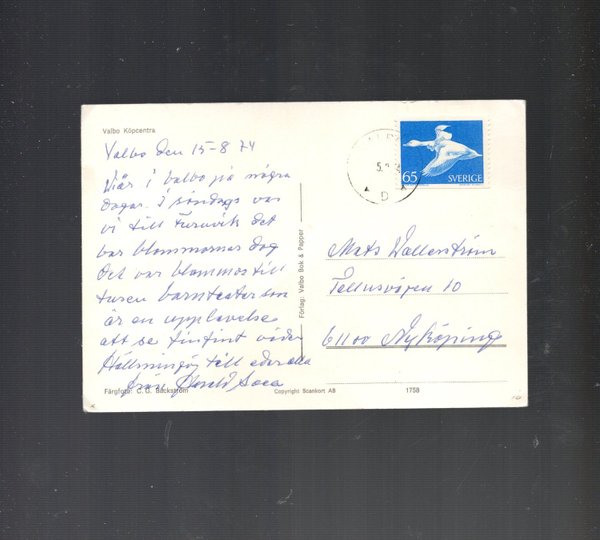 Valbo Köpcentra
Valbo den 15-8 74
Vi är i Valbo på några
dagar. I söndags var
vi till Furuvik det
var blommornas dag
det var blommos till
tusen barnteater som
är en upplevelse
att se fint väder
Hällningar till eder alla
från Harald
65 SVERIGE
D
Mats Wallerström
Tellusvägen 10
61100 Nyköping
Förlag: Valbo Bok & Papper
Färgfoto: C. G. Bäckström
Copyright Scankort AB
1758